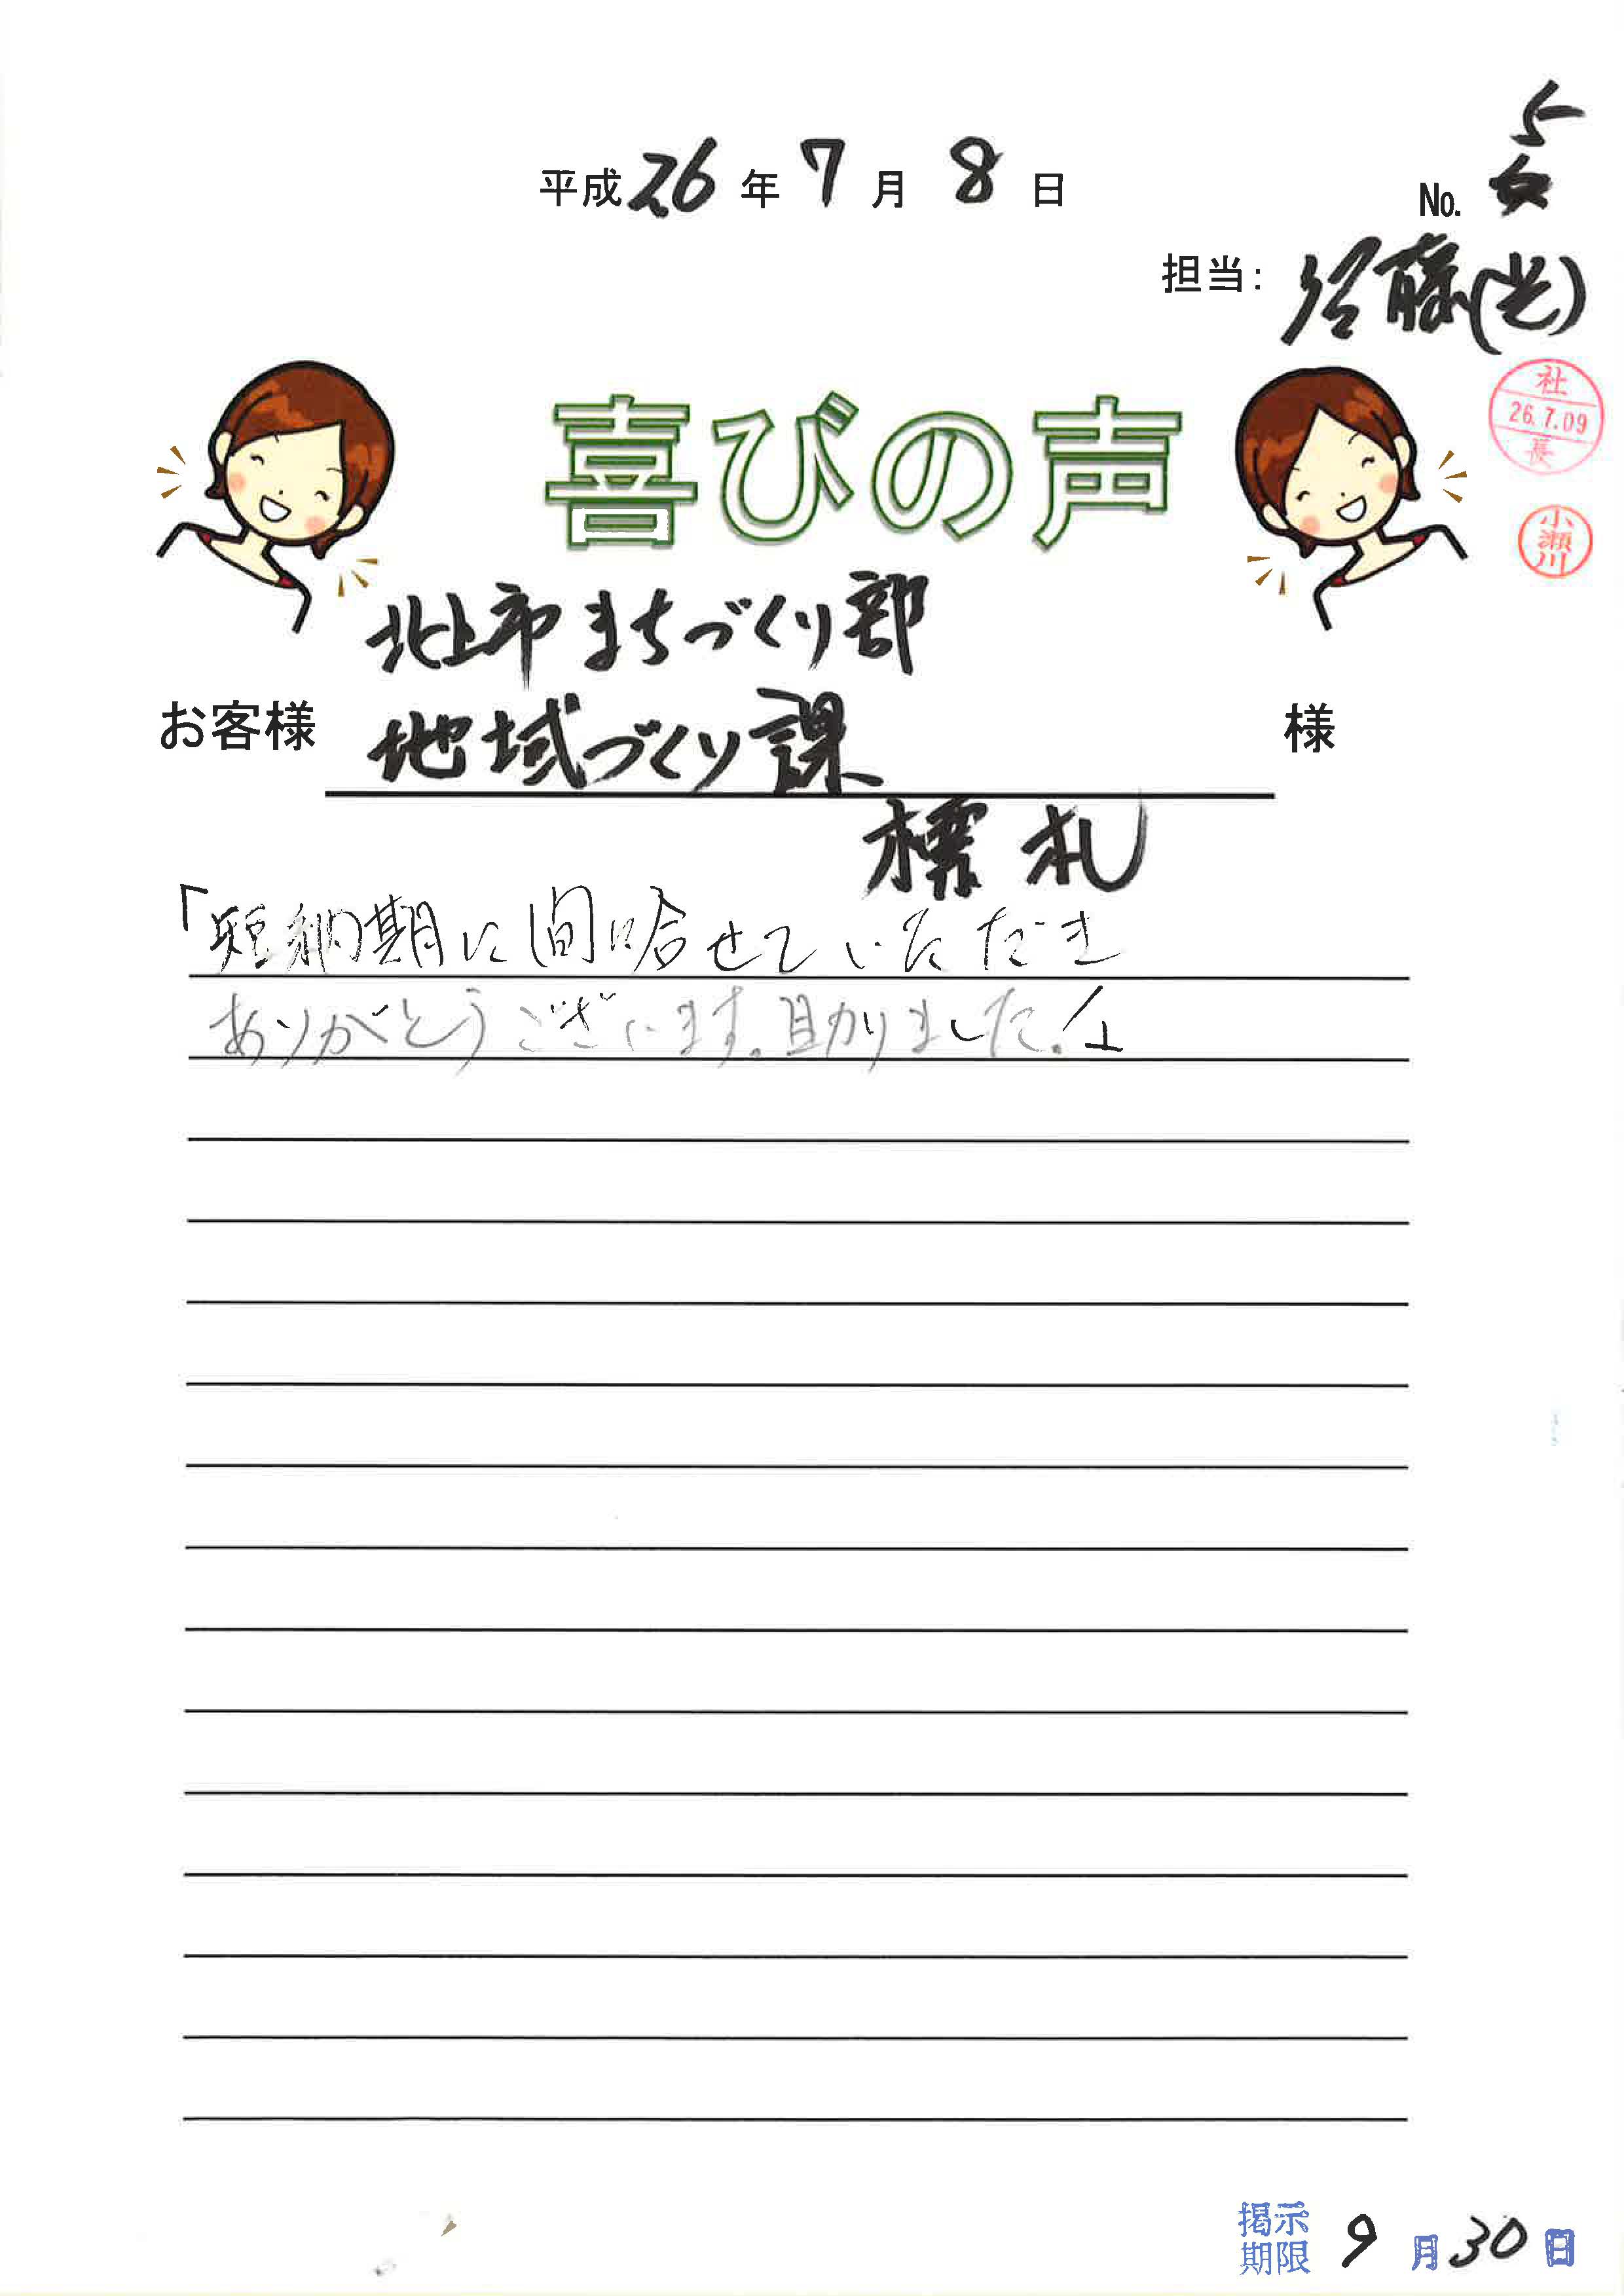 5
平成26年7月8日
No.
担当: 佐藤(光)
社
26.7.09
長
小瀬川
喜びの声
北上市まちづくり部
お客様 地域づくり課 様
標札
「短納期に間に合せていただき
ありがとうございます。助かりました。」
掲示
期限 9月30日